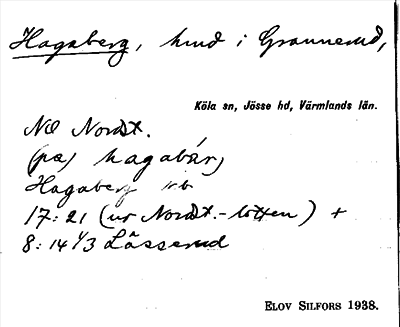 Hagaberg, hmd i Grannerud,
Köla sn, Jösse hd, Värmlands län.
NO Nordst.
(pa) hagabär,
Hagaberg irb
17:21 (ur Nordst.-lotten) +
8:14 1/3 Lässerud
ELOV SILFORS 1938.